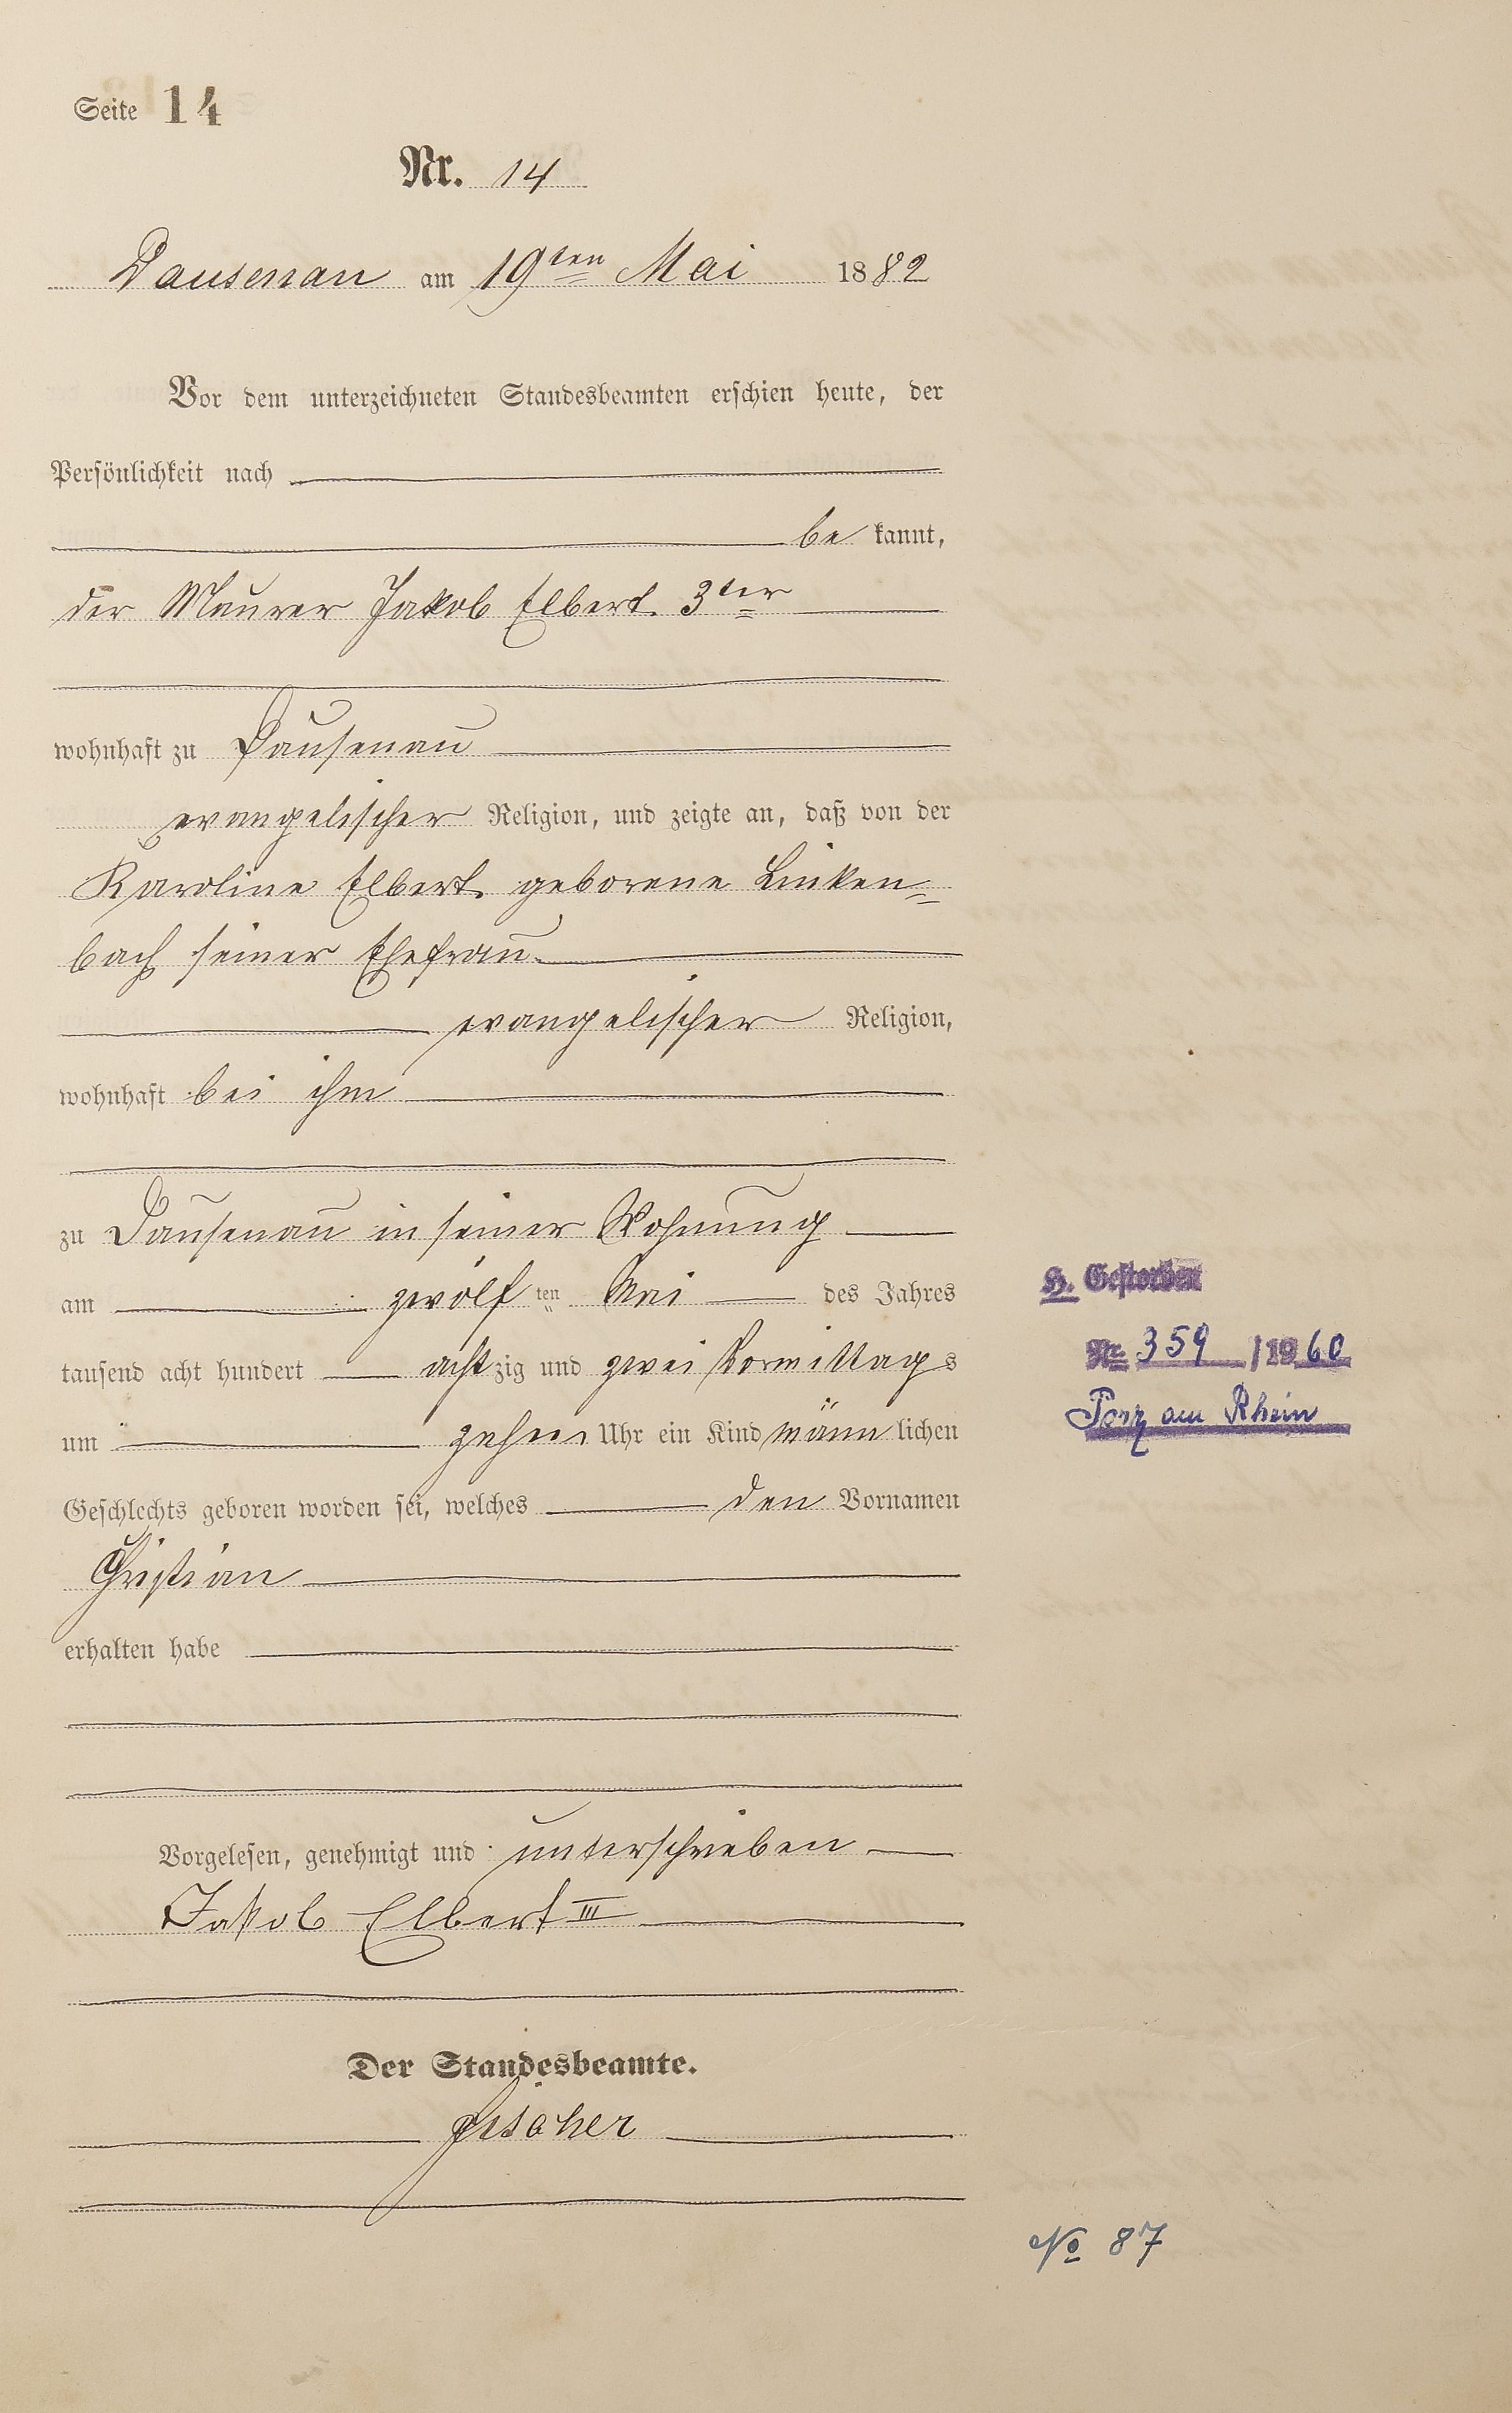 Seite 14
Nr. 14
Dausenau am 19ten Mai 1882
Vor dem unterzeichneten Standesbeamten erschien heute, der
Persönlichkeit nach
be kannt,
der Maurer Jakob Elbert 3ter
wohnhaft zu Dausenau
evangelischer Religion, und zeigte an, daß von der
Karoline Elbert geborene Linken=
bach seiner Ehefrau
evangelischer Religion,
wohnhaft bei ihm
zu Dausenau in seiner Wohnung
am zwölf ten Mai des Jahres
tausend acht hundert achtzig und zwei Vormittags
um zehn Uhr ein Kind männlichen
Geschlechts geboren worden sei, welches den Vornamen
Christian
erhalten habe
Vorgelesen, genehmigt und unterschrieben
Jakob Elbert III
Der Standesbeamte.
Fischer
H. Gestorben
Nr. 359 / 1960
Porz am Rhein
No 87